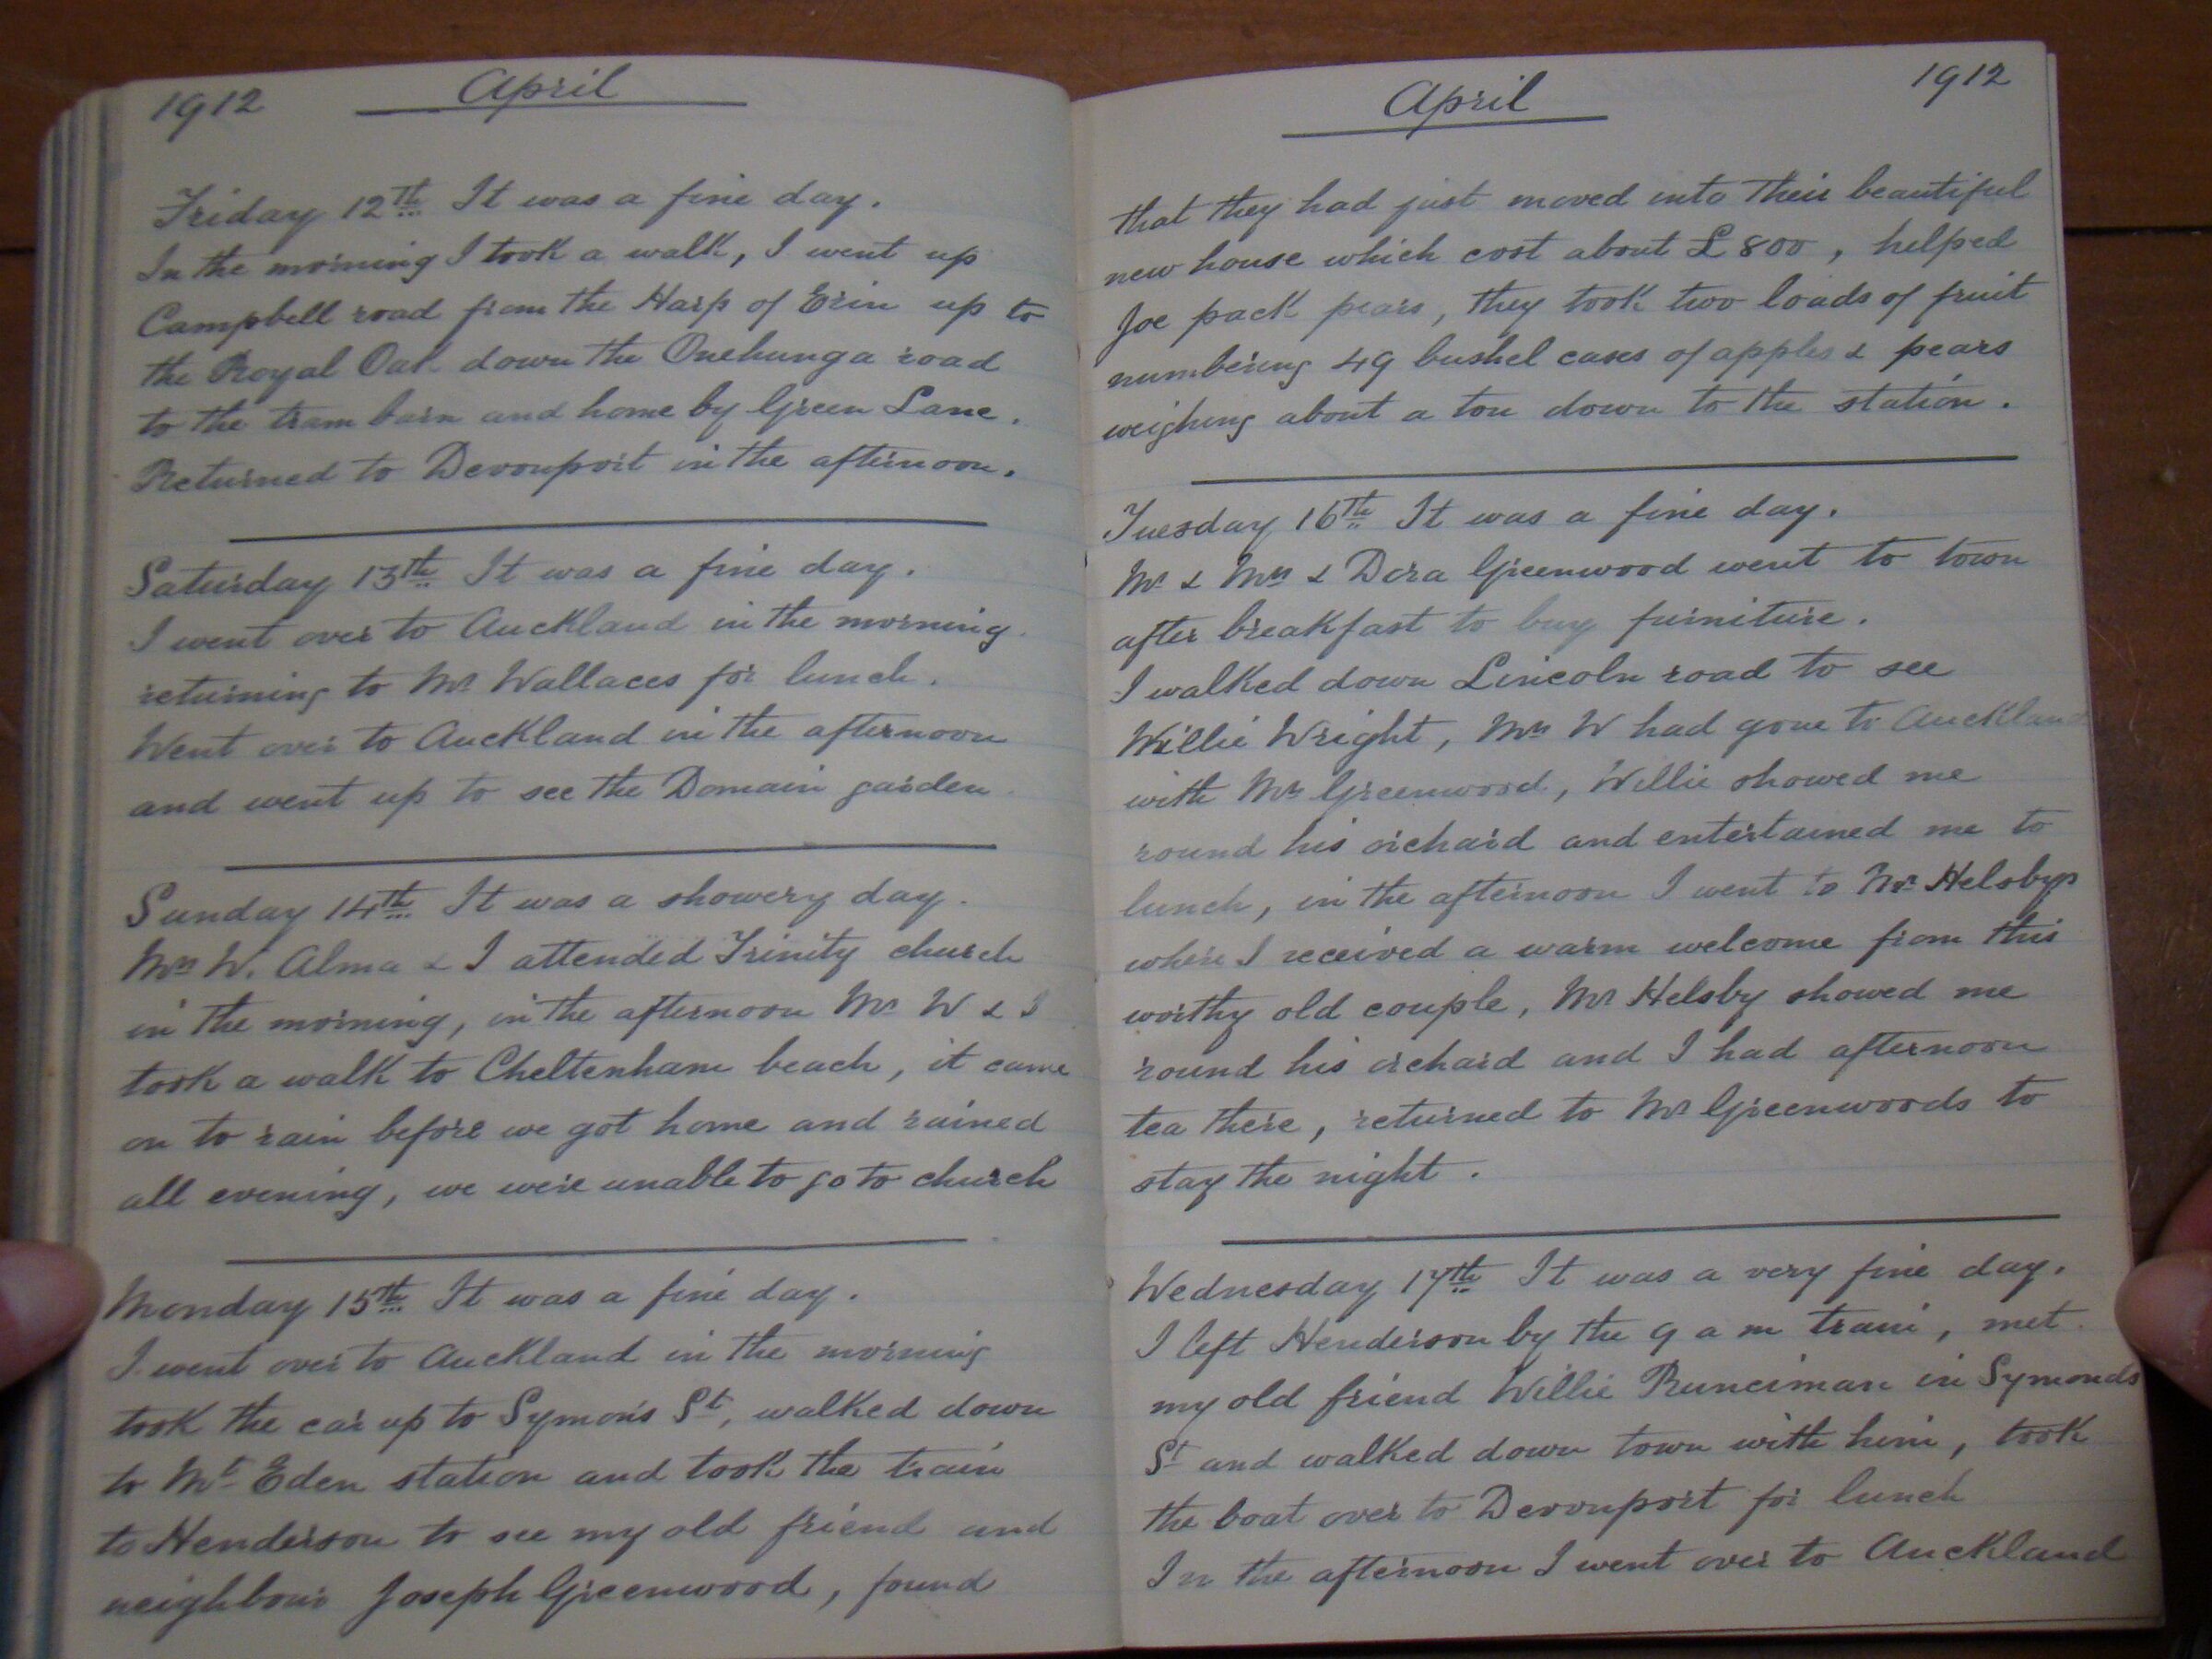 1912 April
Friday 12th It was a fine day.
In the morning I took a walk, I went up
Campbell road from the Harp of Erin up to
the Royal Oak down the Onehunga road
to the tram barn and home by Green Lane.
Returned to Devonport in the afternoon.
Saturday 13th It was a fine day.
I went over to Auckland in the morning
returning to Mr Wallaces for lunch.
Went over to Auckland in the afternoon
and went up to see the Domain garden
Sunday 14th It was a showery day.
Mrs W. Alma & I attended Trinity church
in the morning, in the afternoon Mr W & I
took a walk to Cheltenham beach, it came
on to rain before we got home and rained
all evening, we were unable to go to church
Monday 15th It was a fine day.
I went over to Auckland in the morning
took the car up to Symon's St, walked down
to Mt Eden station and took the train
to Henderson to see my old friend and
neighbour Joseph Greenwood, found
April 1912
that they had just moved into their beautiful
new house which cost about £800, helped
Joe pack pears, they took two loads of fruit
numbering 49 bushel cases of apples & pears
weighing about a ton down to the station.
Tuesday 16th It was a fine day.
Mr & Mrs & Dora Greenwood went to town
after breakfast to buy furniture.
I walked down Lincoln road to see
Willie Wright, Mrs W had gone to Auckland
with Mr Greenwood, Willie showed me
round his orchard and entertained me to
lunch, in the afternoon I went to Mr Helsbys
where I received a warm welcome from this
worthy old couple, Mr Helsby showed me
round his orchard and I had afternoon
tea there, returned to Mr Greenwoods to
stay the night.
Wednesday 17th It was a very fine day.
I left Henderson by the 9 a m train, met
my old friend Willie Runciman in Symonds
St and walked down town with him, took
the boat over to Devonport for lunch
In the afternoon I went over to Auckland